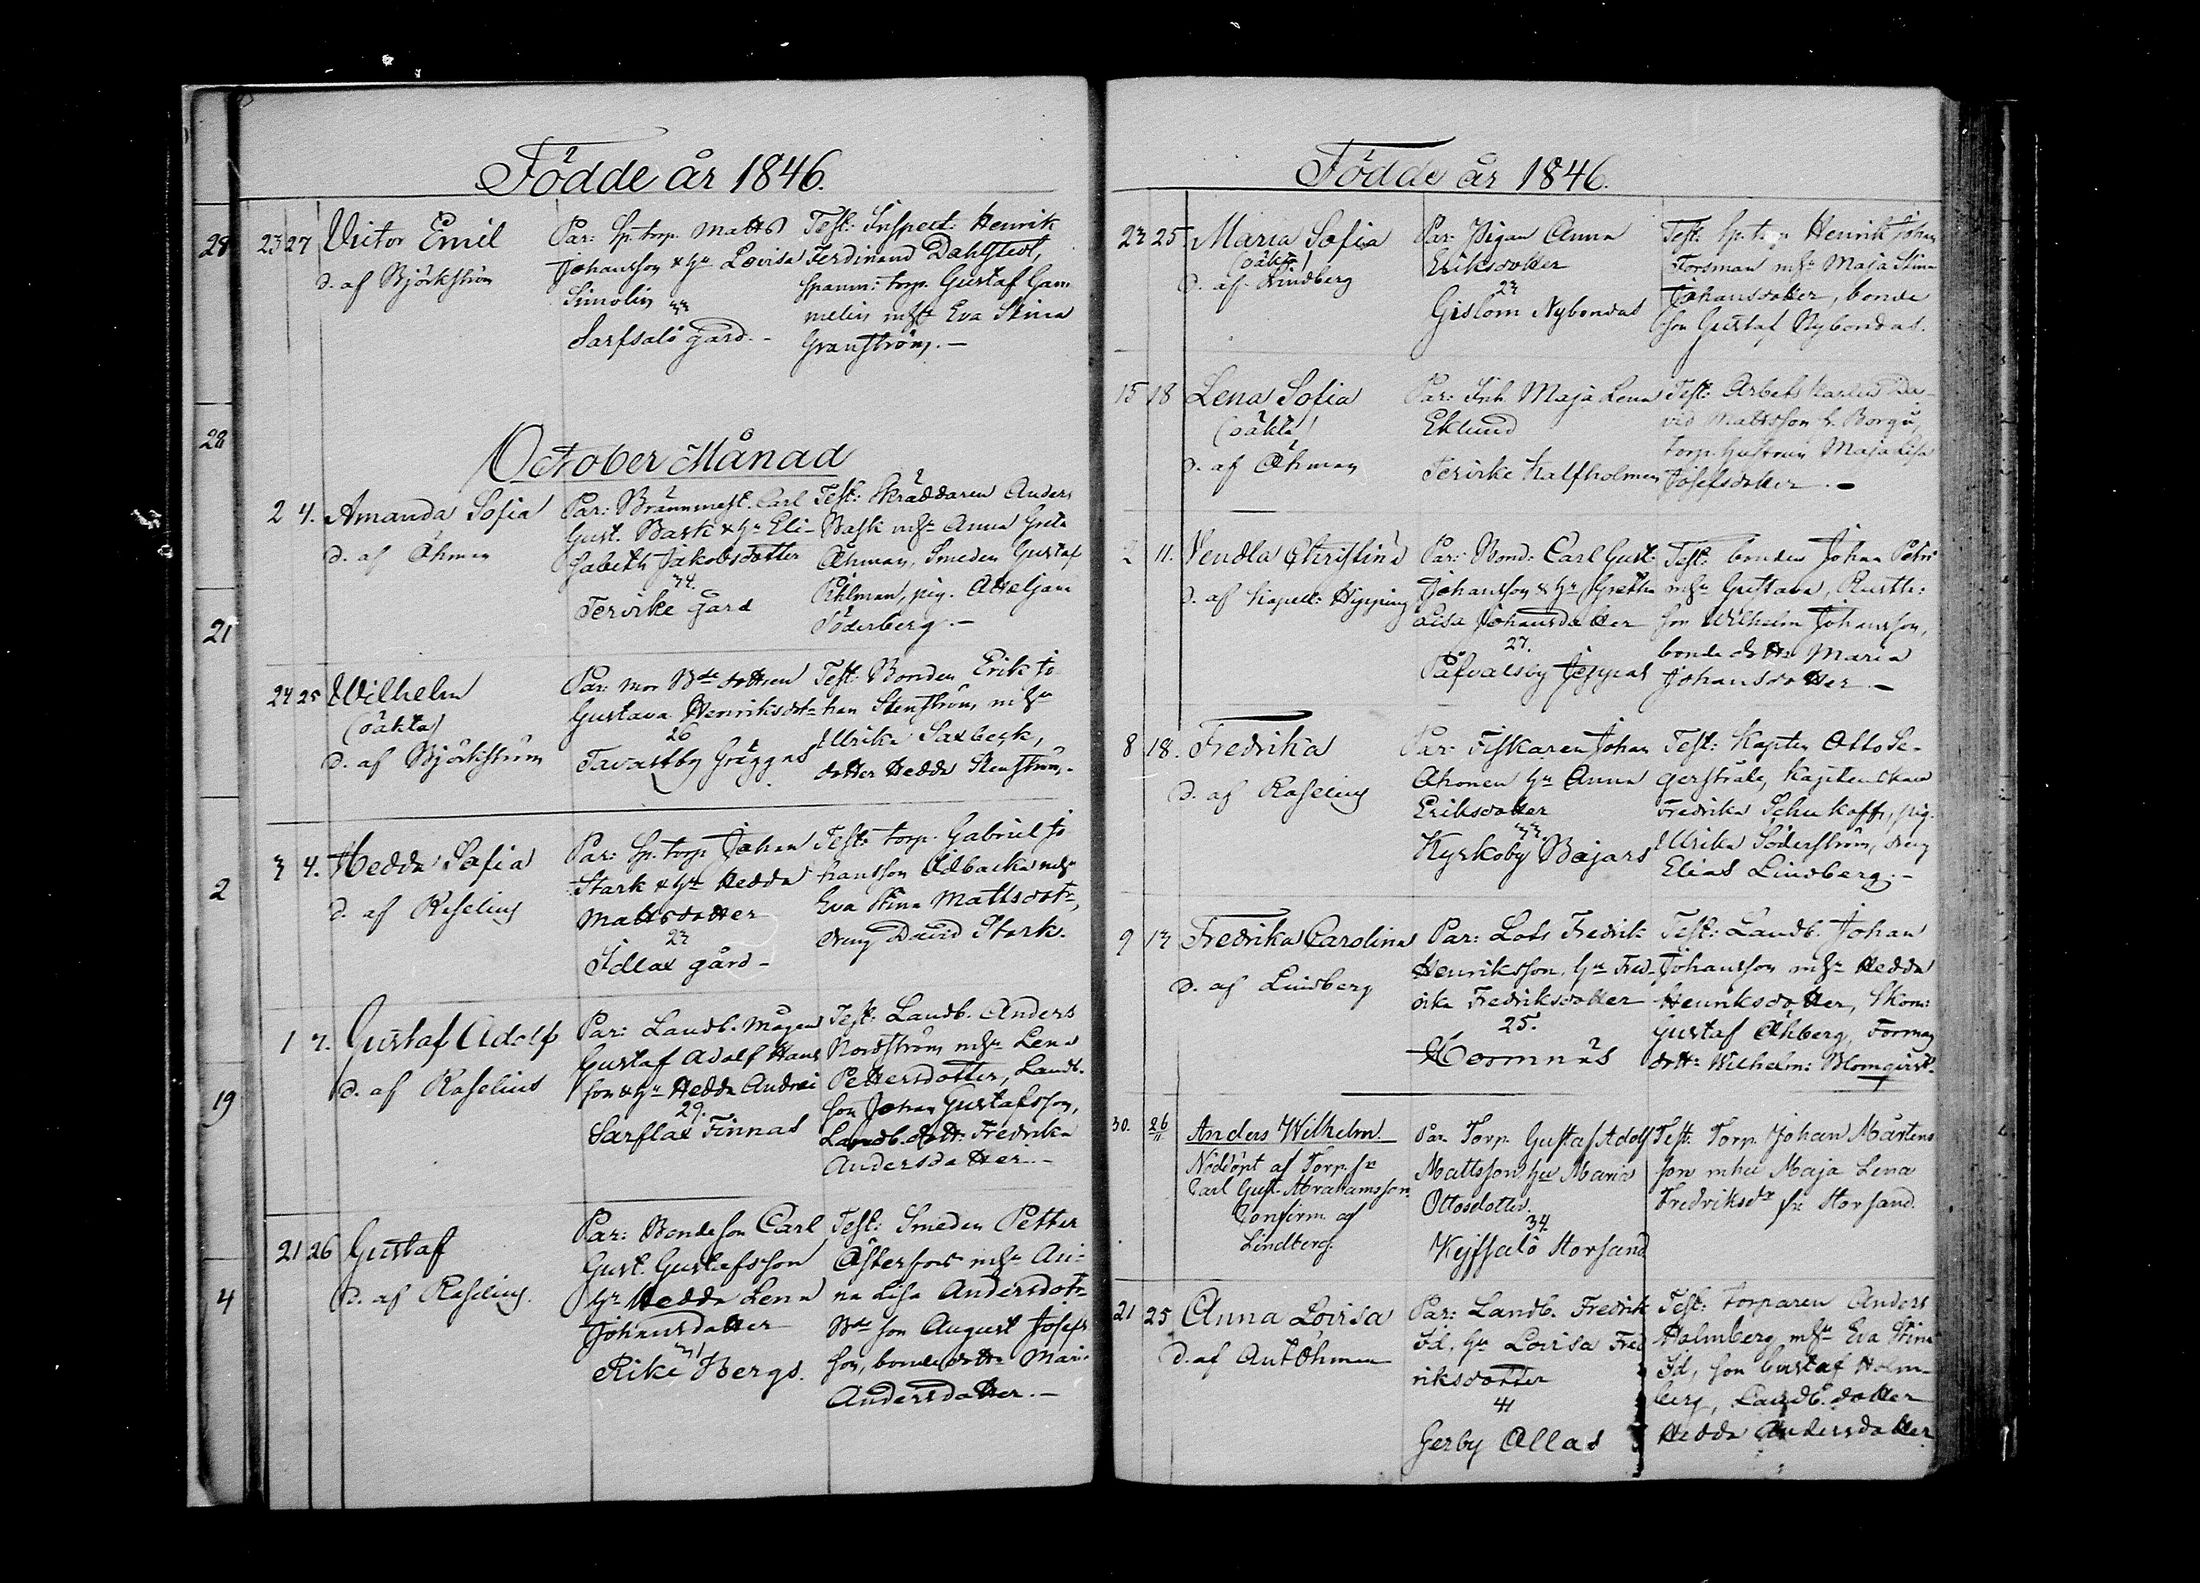 Födde år 1846.
28 23 27 Victor Emil
d. af Björkström
Par: Sp. torp. Matts
Johansson & hu Lovisa
Simolin
33
Sarfsalö gård.
Test: Inspect: Henrik
Ferdinand Dahlstedt,
Spanm: torp. Gustaf Gam
melin mhu Eva Stina
Granström.
28
October Månad
2 4. Amanda Sofia
d. af Öhman
Par: Brännmest. Carl
Gust. Bask & hu Eli-
sabeth Jakobsdotter
34.
Tervike gård
Test: Skräddaren Anders
Bask mhu Anna Greta
Öhman, Smeden Gustaf
Pihlman, pig.
Söderberg.
21
24 25 Wilhelm
(oäkta)
d. af Björkström
Par: mor Bde dottren
Gustava Henriksdotr
26
Tavastby Gräggas
Test: Bonden Erik Jo
han Stenström mhu
Ulrika Saxbeck,
dotter Hedda Stenström.
2
3 4. Hedda Sofia
d. af Roselius
Par: Sp. torp Johan
Stark & hu Hedda
Mattsdotter
23
Idlax gård
Test: torp. Gabriel Jo
hansson Ådbacka mhu
Eva Stina Mattsdotr,
dreng David Stark.
19
1 7. Gustaf Adolf
d. af Roselius
Par: Landb. mågen
Gustaf Adolf Hans
son & hu Hedda Andrei
29.
Sarflax Finnas
Test: Landb. Anders
Nordström mhu Lena
Pettersdotter, Landb.
son Johan Gustafsson,
Landb. dottr. Fredrika
Andersdotter.
4
21 26 Gustaf
d. af Roselius.
Par: Bondeson Carl
Gust. Gustafsson
hu Hedda Lena
Johansdotter
31
Rike Bergs.
Test: Smeden Petter
Österfors mhu An-
na Lisa Andersdotr
Bde son August Josefs
son, bonde dottr Mari-
Andersdotter.
Födde år 1846.
23 25 Maria Sofia
(oäkta)
d. af Lindberg
Par: Pigan Anna
Eriksdotter
23
Gislom Nybondas
Test: Sp. torp Henrik Johan
Forsman mhu Maja Stina
Johansdotter, bonde
son Gustaf Nybondas.
15 18 Lena Sofia
(oäkta)
d. af Öhman
Par: Inh Maja Lena
Eklund
Tervike Kalfholmen
Test: Arbets karlen Da-
vid Mattsson fr. Borgå,
torp. hustrun Maja Lisa
Josefsdotter.
2 11. Vendla Christina
d. af Kapell: Hipping
Par: Bond: Carl Gust:
Johansson & hu Gretha
Lisa Johansdotter
27.
Påfvalsby Jeppas
Test: bonden Johan Petri
mhu Gustava, Rustth:
son Wilhelm Johansson,
bonde dottr Maria
Johansdotter.
8 18. Fredrika
d. af Roselius
Par: Fiskaren Johan
Ahonen hu Anna
Eriksdotter
33.
Kyrkoby Bajars
Test: Kapten Otto Se-
gerstråle, Kaptenskan
Fredrika Schukoff, pig.
Ulrika Söderström, dreng
Elias Lindberg.
9 13 Fredrika Carolina
d. af Lindberg
Par: Lots Fredrik
Henriksson, hu Fred-
rika Fredriksdotter
25.
Hormnäs
Test: Landb. Johan
Johansson mhu Hedda
Henriksdotter, Skom:
Gustaf Öhberg, Forman
dottr Wilhelm: Blomqvist.
30. 26/11 Anders Wilhelm.
Nöddöpt af Torp. sn
Carl Gust. Abrahamsson
Confirm. af
Lindberg.
Par. Torp. Gustaf Adolf
Mattsson hu Maria
Ottosdotter.
34.
Kejfsalö Storsand
Test: Torp. Johan Mårtens
son mhu Maja Lena
Fredriksdr fr. Storsand.
21 25 Anna Lovisa
d. af Ant Öhman
Par: Landb. Fredrik
Id, hu Lovisa Fred
riksdotter
41
Gerby Ollas
Test: torparen Anders
Holmberg mhu Eva Stina
Id, son Gustaf Holm-
berg, Landb. dotter
Hedda Andersdotter